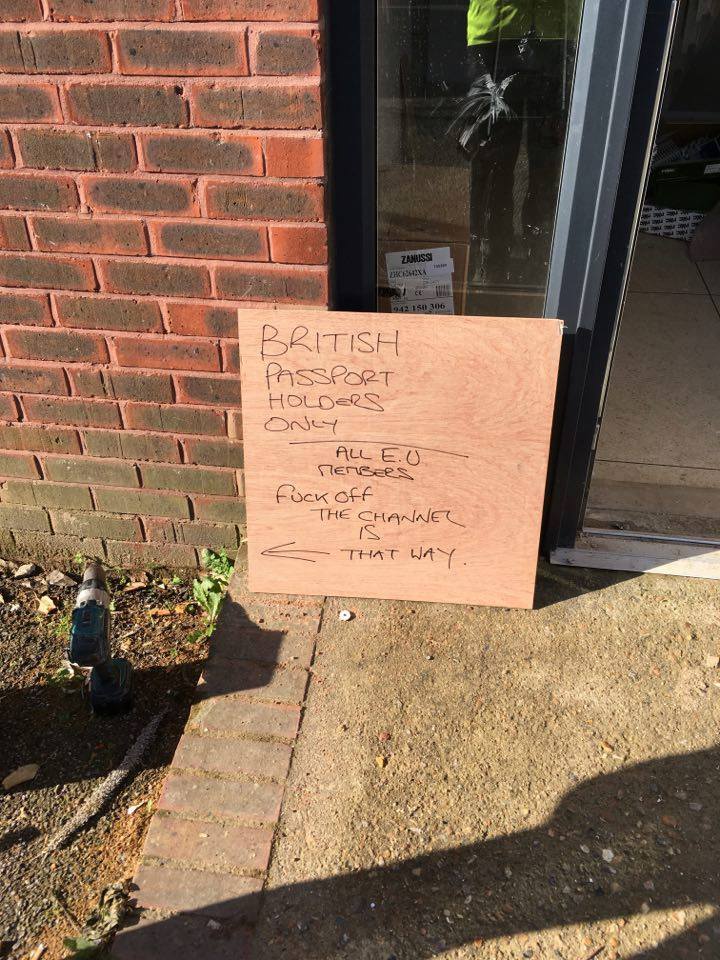 ZANUSSI
942 150 306
BRITISH
PASSPORT
HOLDERS
ONLY
ALL E.U
MEMBERS
FUCK OFF
THE CHANNEL
IS
← THAT WAY.